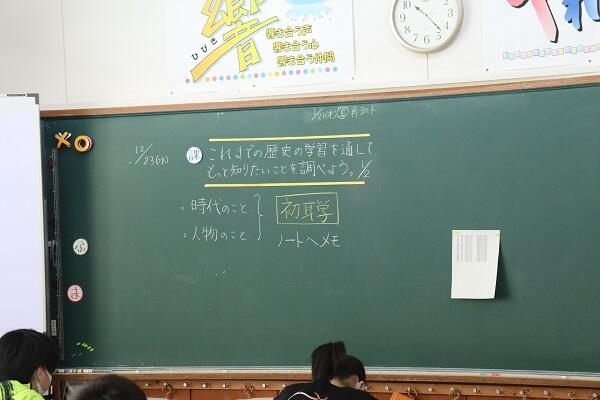 響
ひびき
響き合う声
響き合う心
響き合う仲間
12/23(水)
課
これまでの歴史の学習を通して
もっと知りたいことを調べよう。1/2
。時代のこと
。人物のこと
初耳学
ノートへメモ
ま